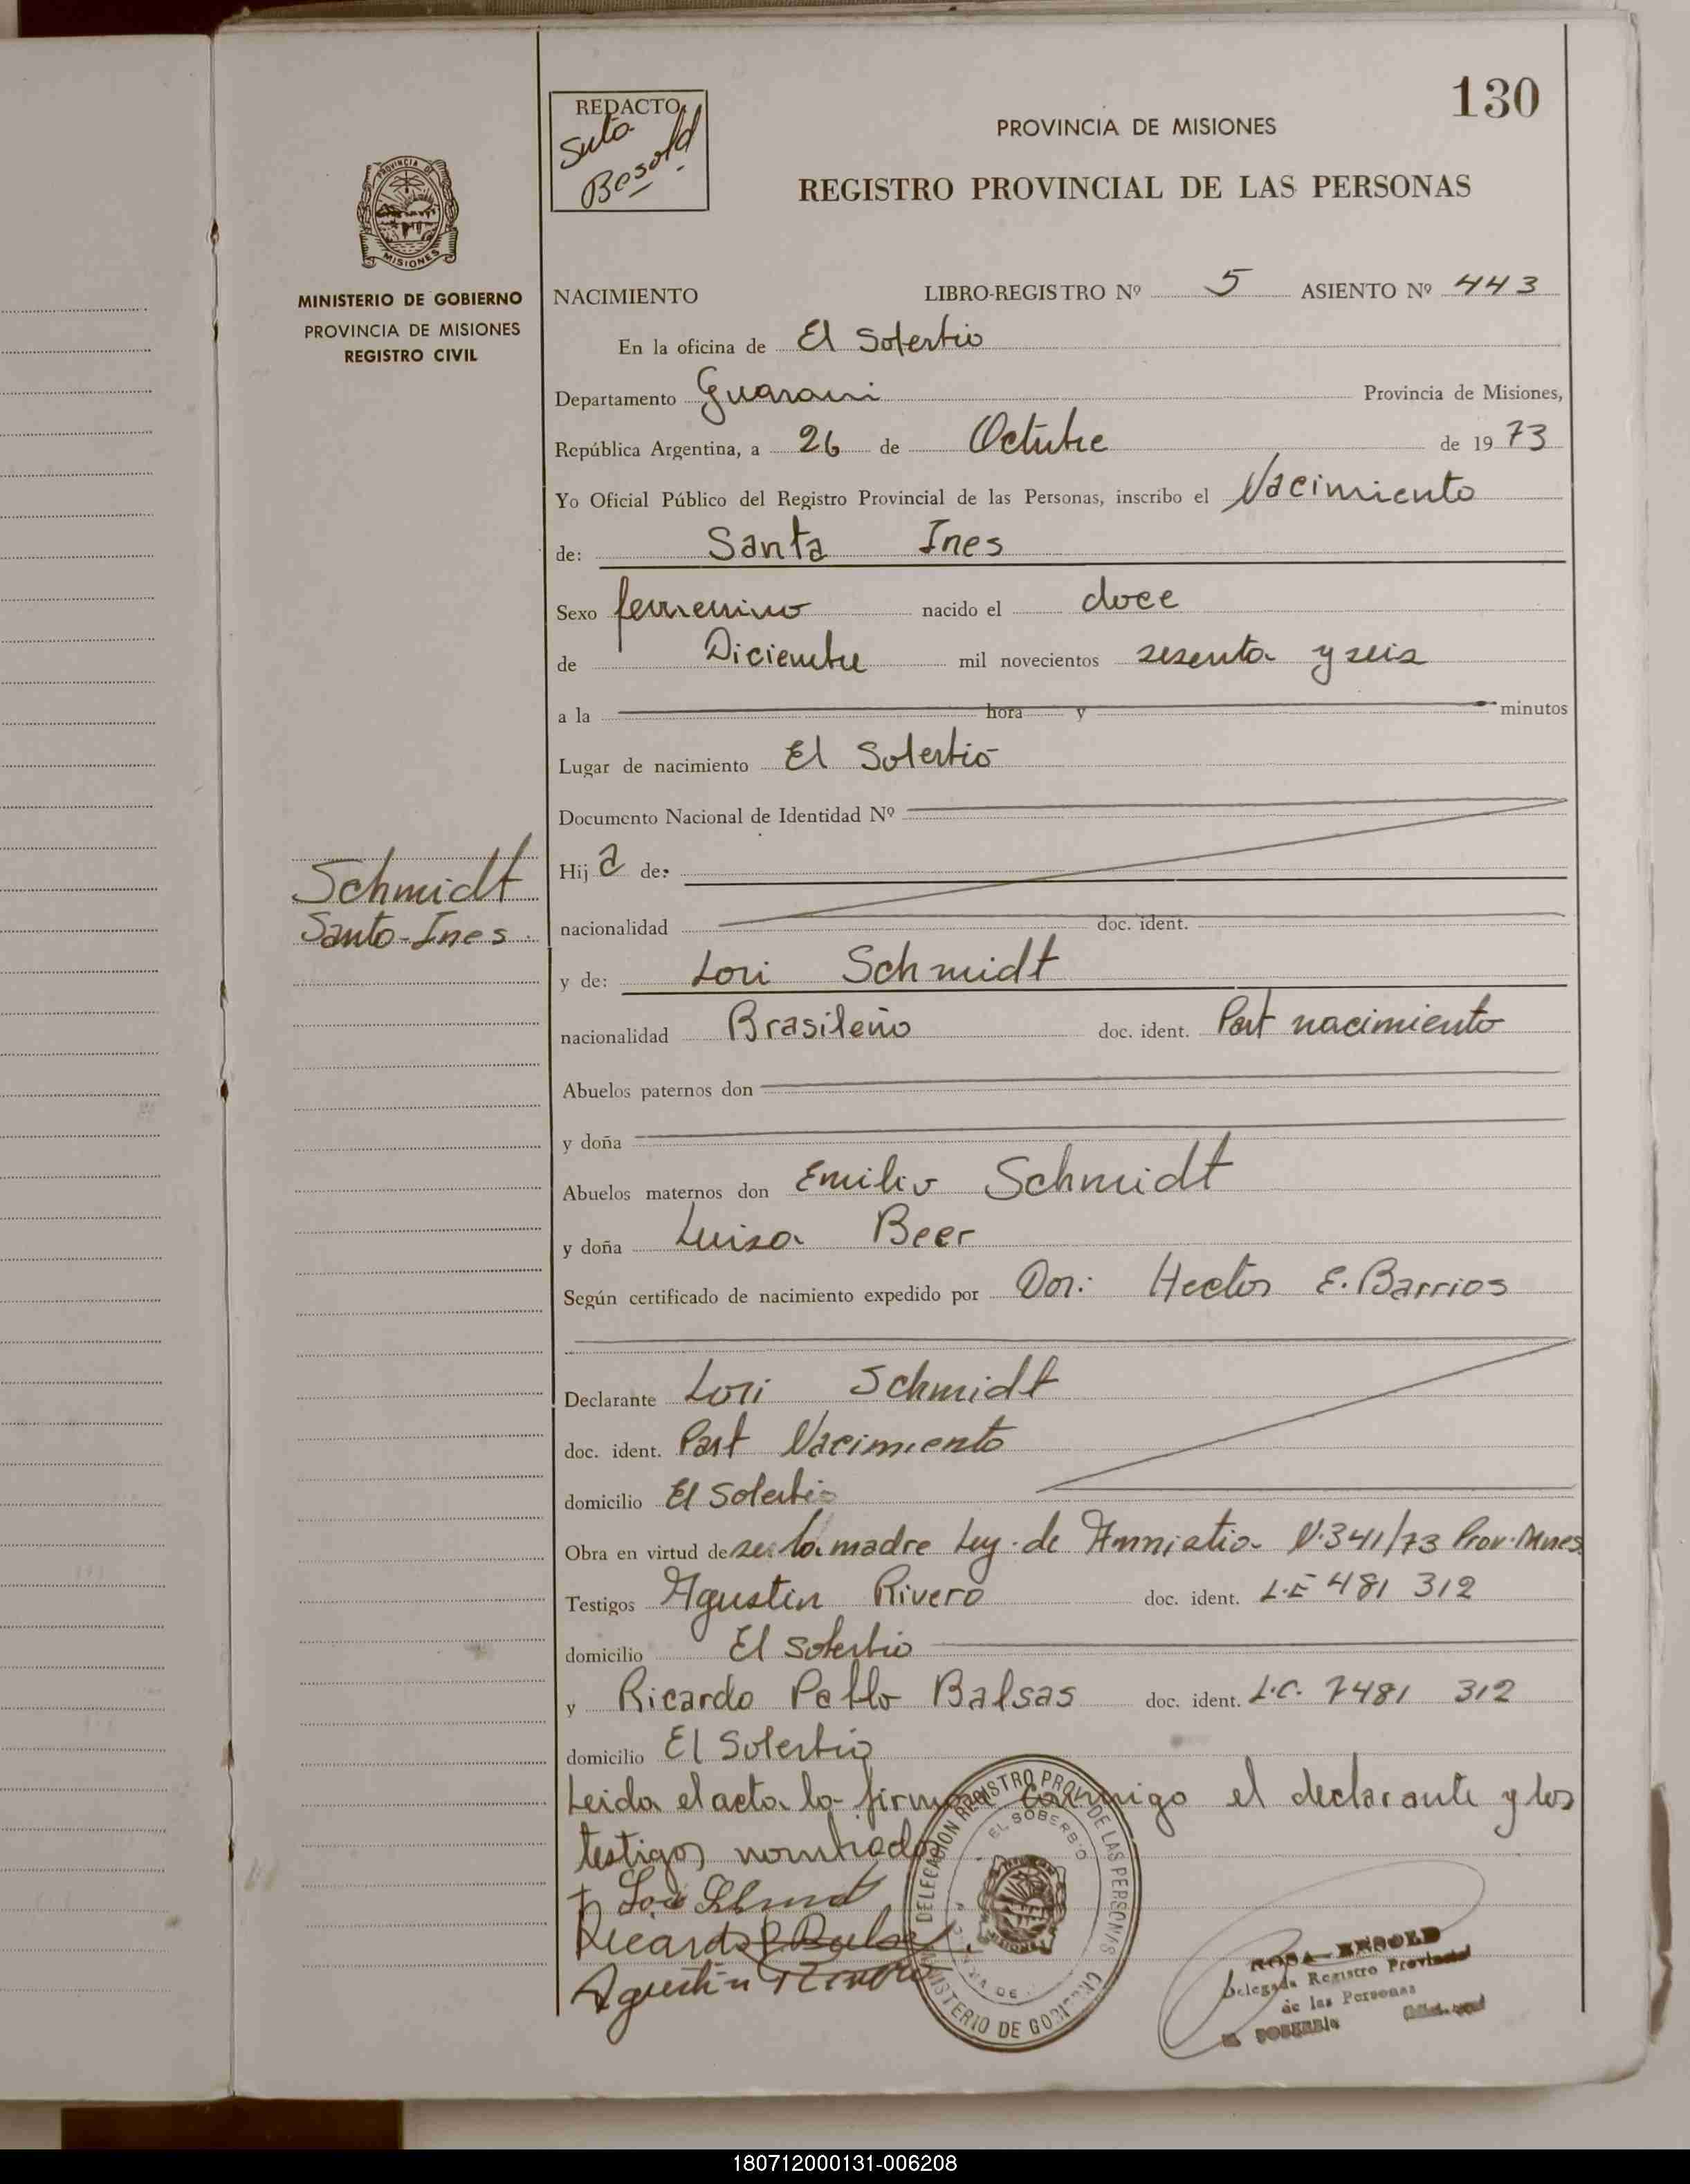 130
REDACTO
Besold
PROVINCIA DE MISIONES
REGISTRO PROVINCIAL DE LAS PERSONAS
PROVINCIA DE
MISIONES
MINISTERIO DE GOBIERNO
PROVINCIA DE MISIONES
REGISTRO CIVIL
NACIMIENTO LIBRO-REGISTRO Nº 5 ASIENTO Nº 443
En la oficina de El Soberbio
Departamento Guarani Provincia de Misiones,
República Argentina, a 26 de Octubre de 1973
Yo Oficial Público del Registro Provincial de las Personas, inscribo el Nacimiento
de: Santa Ines
Sexo femenino nacido el doce
de Diciembre mil novecientos sesenta y seis
a la hora y minutos
Lugar de nacimiento El Soberbio
Documento Nacional de Identidad Nº
Hija de:
Schmidt
Santa Ines
nacionalidad doc. ident.
y de: Lori Schmidt
nacionalidad Brasileño doc. ident. Part nacimiento
Abuelos paternos don
y doña
Abuelos maternos don Emilio Schmidt
y doña Luisa Beer
Según certificado de nacimiento expedido por Dor: Hector E. Barrios
Declarante Lori Schmidt
doc. ident. Part Nacimiento
domicilio El Soberbio
Obra en virtud de ser la madre Ley de Amnistia N.341/73 Prov. Mnes
Testigos Agustin Rivero doc. ident. L.E 481 312
domicilio El Soberbio
y Ricardo Pablo Balsas doc. ident. L.C. 7481 312
domicilio El Soberbio
Leida el acta la firman conmigo el declarante y los
testigos nombrados
Ricardo P. Balsas
Agustin Rivero
DELEGACION REGISTRO PROV. DE LAS PERSONAS
EL SOBERBIO
MINISTERIO DE GOBIERNO
ROSA BESOLD
Delegada Registro Provincial
de las Personas
EL SOBERBIO
180712000131-006208